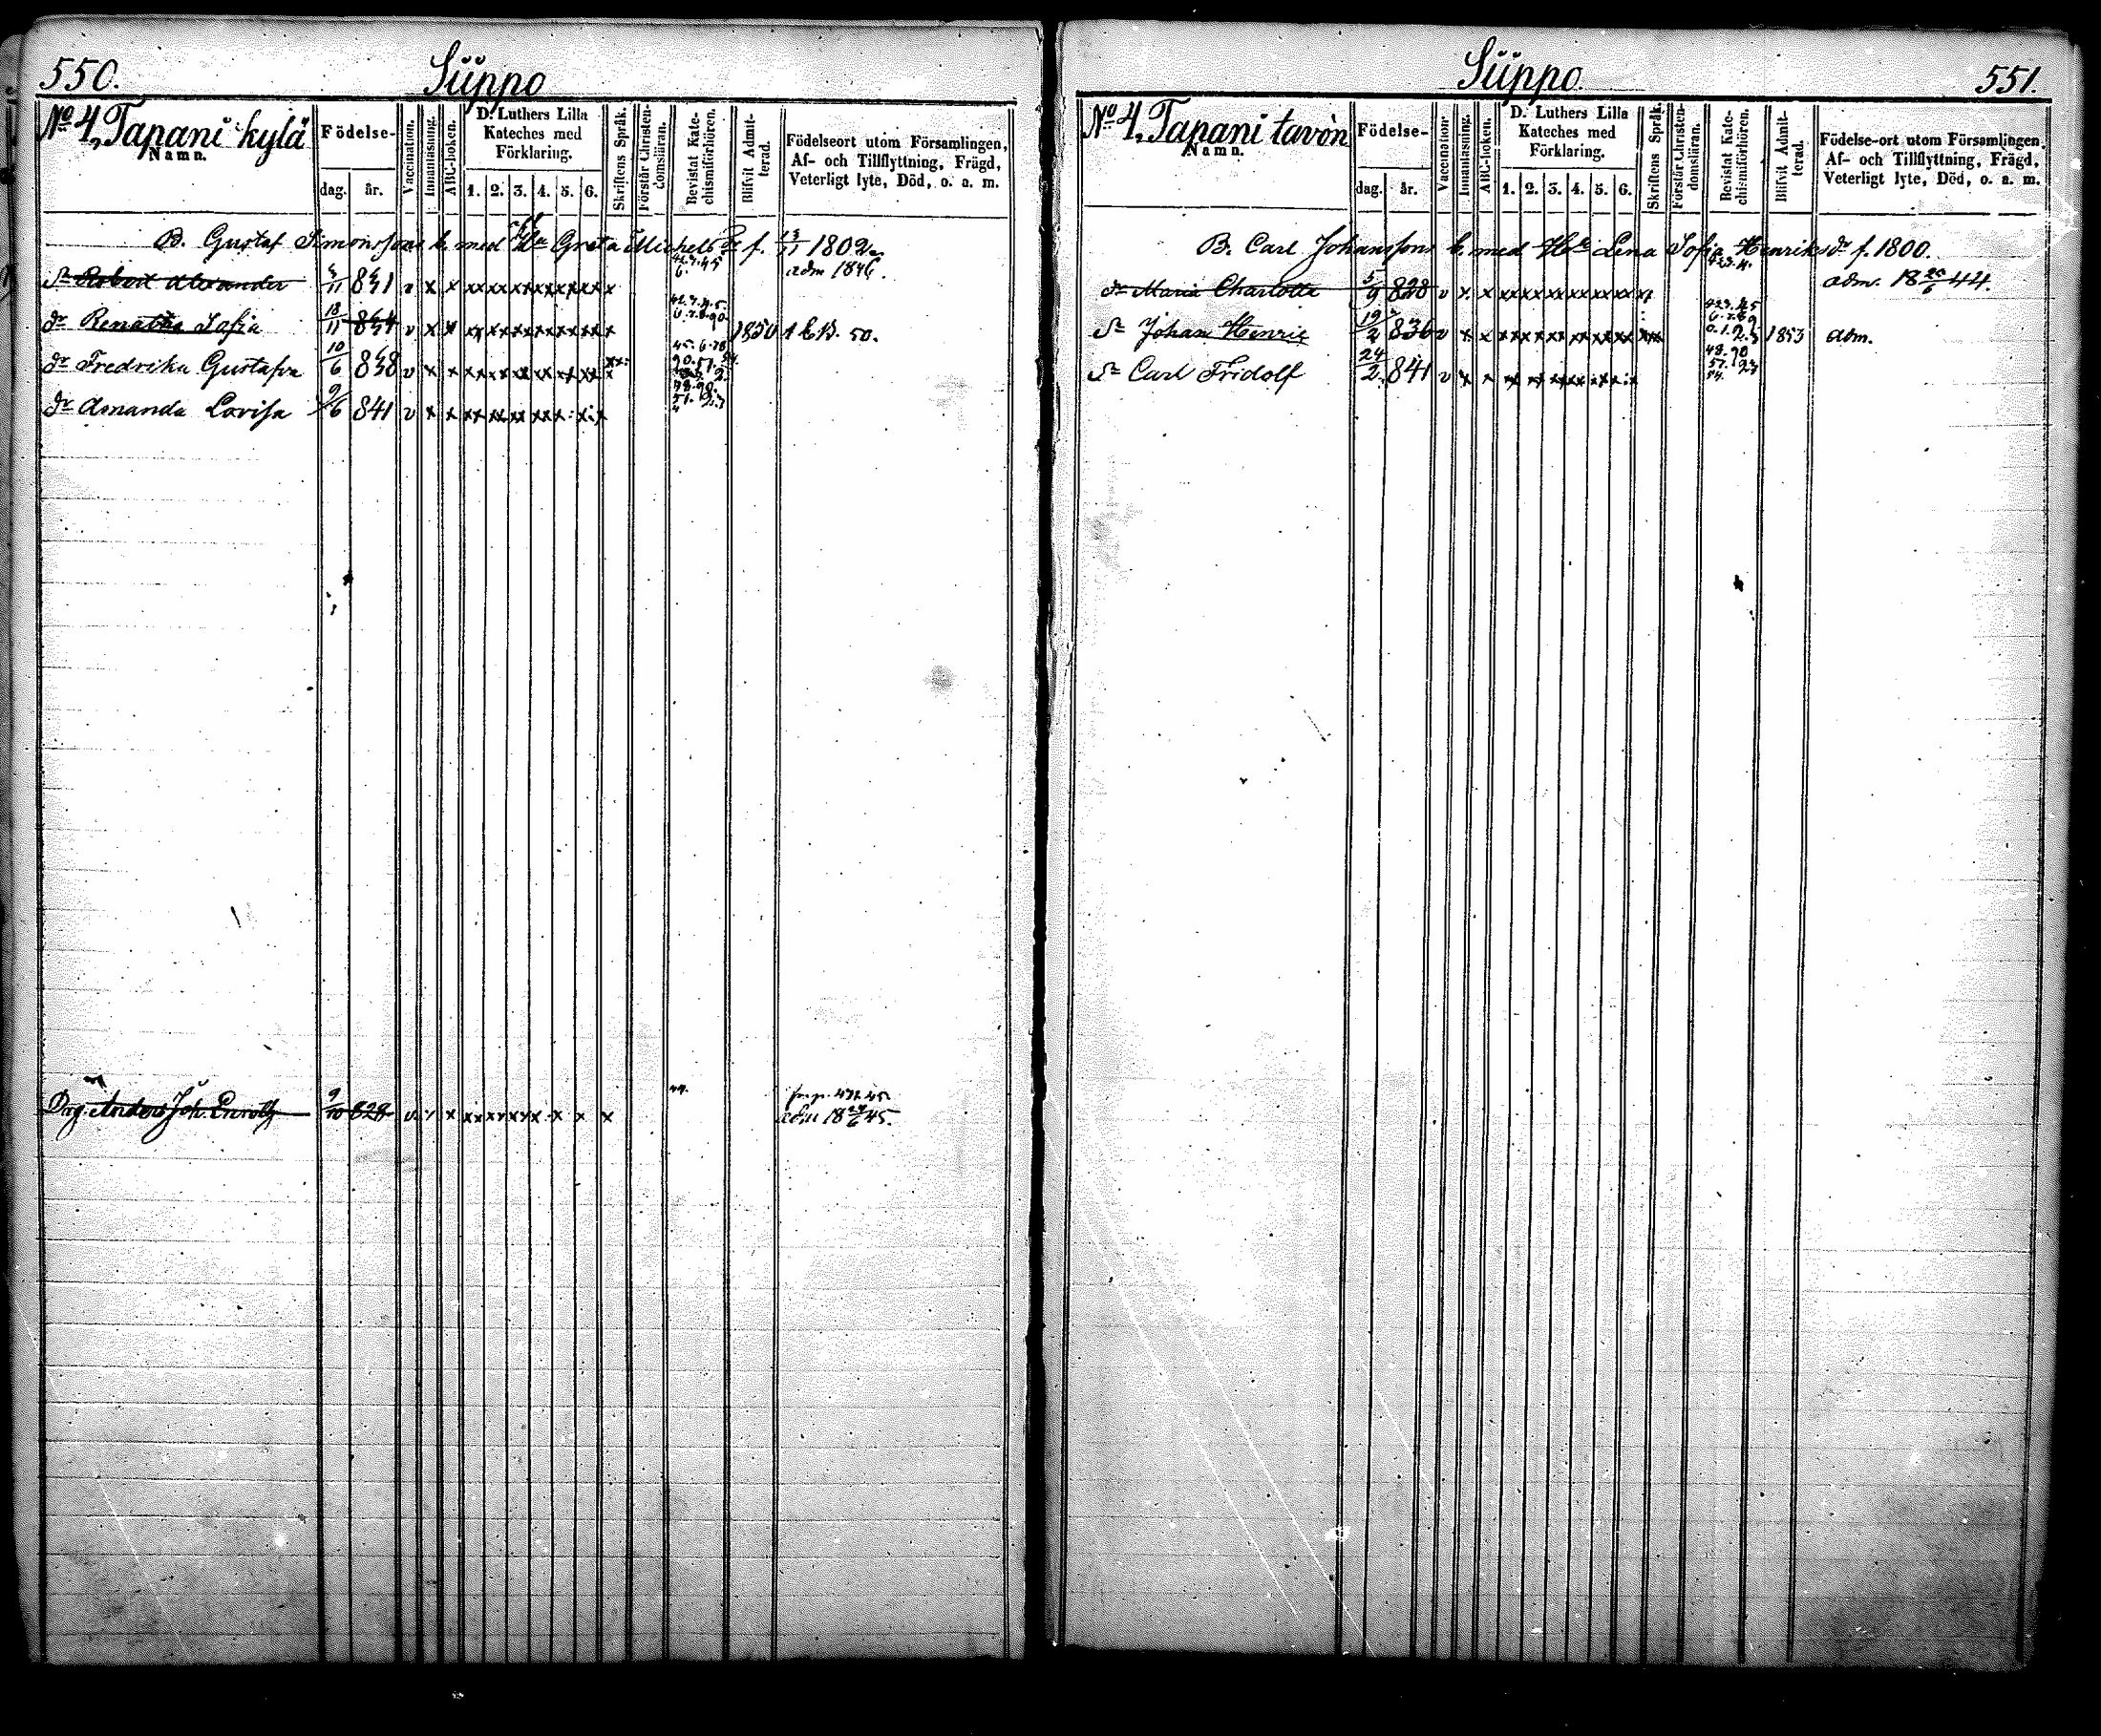 550.
Siippo
No 4, Tapani kylä
Namn.
Födelse-
dag.
år.
Vaccination.
Innanläsning.
ABC-boken.
D. Luthers Lilla
Kateches med
Förklaring.
1. 2. 3. 4. 5. 6.
Skriftens Språk.
Förstår Christen-
domsläran.
Bevistat Kate-
chismiförhören.
Blifvit Admit-
terad.
Födelseort utom Församlingen,
Af- och Tillflyttning, Frägd,
Veterligt lyte, Död, o. a. m.
B. Gustaf Simonssons b. med Greta Michels Dr f. 13/11 1802
Sn Robert Alexander 11 831 v x x adm 1846.
dr Renatha Sofia 18/11 834 v x x 1850 50.
dr Fredrika Gustafva 10/6 838 v x x
dr Amanda Lovisa 9/6 841 v x x
Drg. Anders Joh. 9/10 828 v x x 45.
551.
Siippo
No 4, Tapani tavon
Namn.
Födelse-
dag.
år.
Vaccination.
Innanläsning.
ABC-boken.
D. Luthers Lilla
Kateches med
Förklaring.
1. 2. 3. 4. 5. 6.
Skriftens Språk.
Förstår Christen-
domsläran.
Bevistat Kate-
chismiförhören.
Blifvit Admit-
terad.
Födelse-ort utom Församlingen,
Af- och Tillflyttning, Frägd,
Veterligt lyte, Död, o. a. m.
B. Carl Johanssons b. med Lena Sofia Henriks dr f. 1800.
dr Maria Charlotta 5/9 828 v x x adm. 18 20/6 44.
Sn Johan Henric 19/2 836 v x x 1853 adm.
Sn Carl Fridolf 24/2 841 v x x